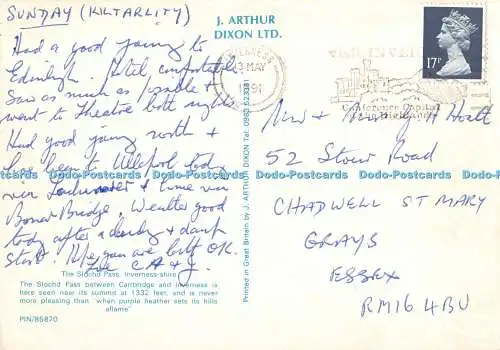 SUNDAY (KILTARLITY)
Had a good going to
Edinburgh. Hotel comfortable.
Saw as much as possible &
went to Theatre both nights.
Had good going north &
have been to Ullapool today
via &  home via
Bonar Bridge. Weather good
today after a & damp
start. Hope you are both OK.
Love
J. ARTHUR
DIXON LTD.
INVERNESS
13 MAY
1991
17P
Conference Capital
of the Highlands
Mr & Mrs
52 Stour Road
CHADWELL ST MARY
GRAYS
ESSEX
RM16 4BU
Printed in Great Britain by J. ARTHUR DIXON Tel: 0983 523381
The Slochd Pass, Inverness-shire
The Slochd Pass between Carrbridge and Inverness is
here seen near its summit at 1332 feet, and is never
more pleasing than "when purple heather sets its hills
aflame"
PIN/85870
Dodo-Postcards Dodo-Postcards Dodo-Postcards Dodo-Postcards